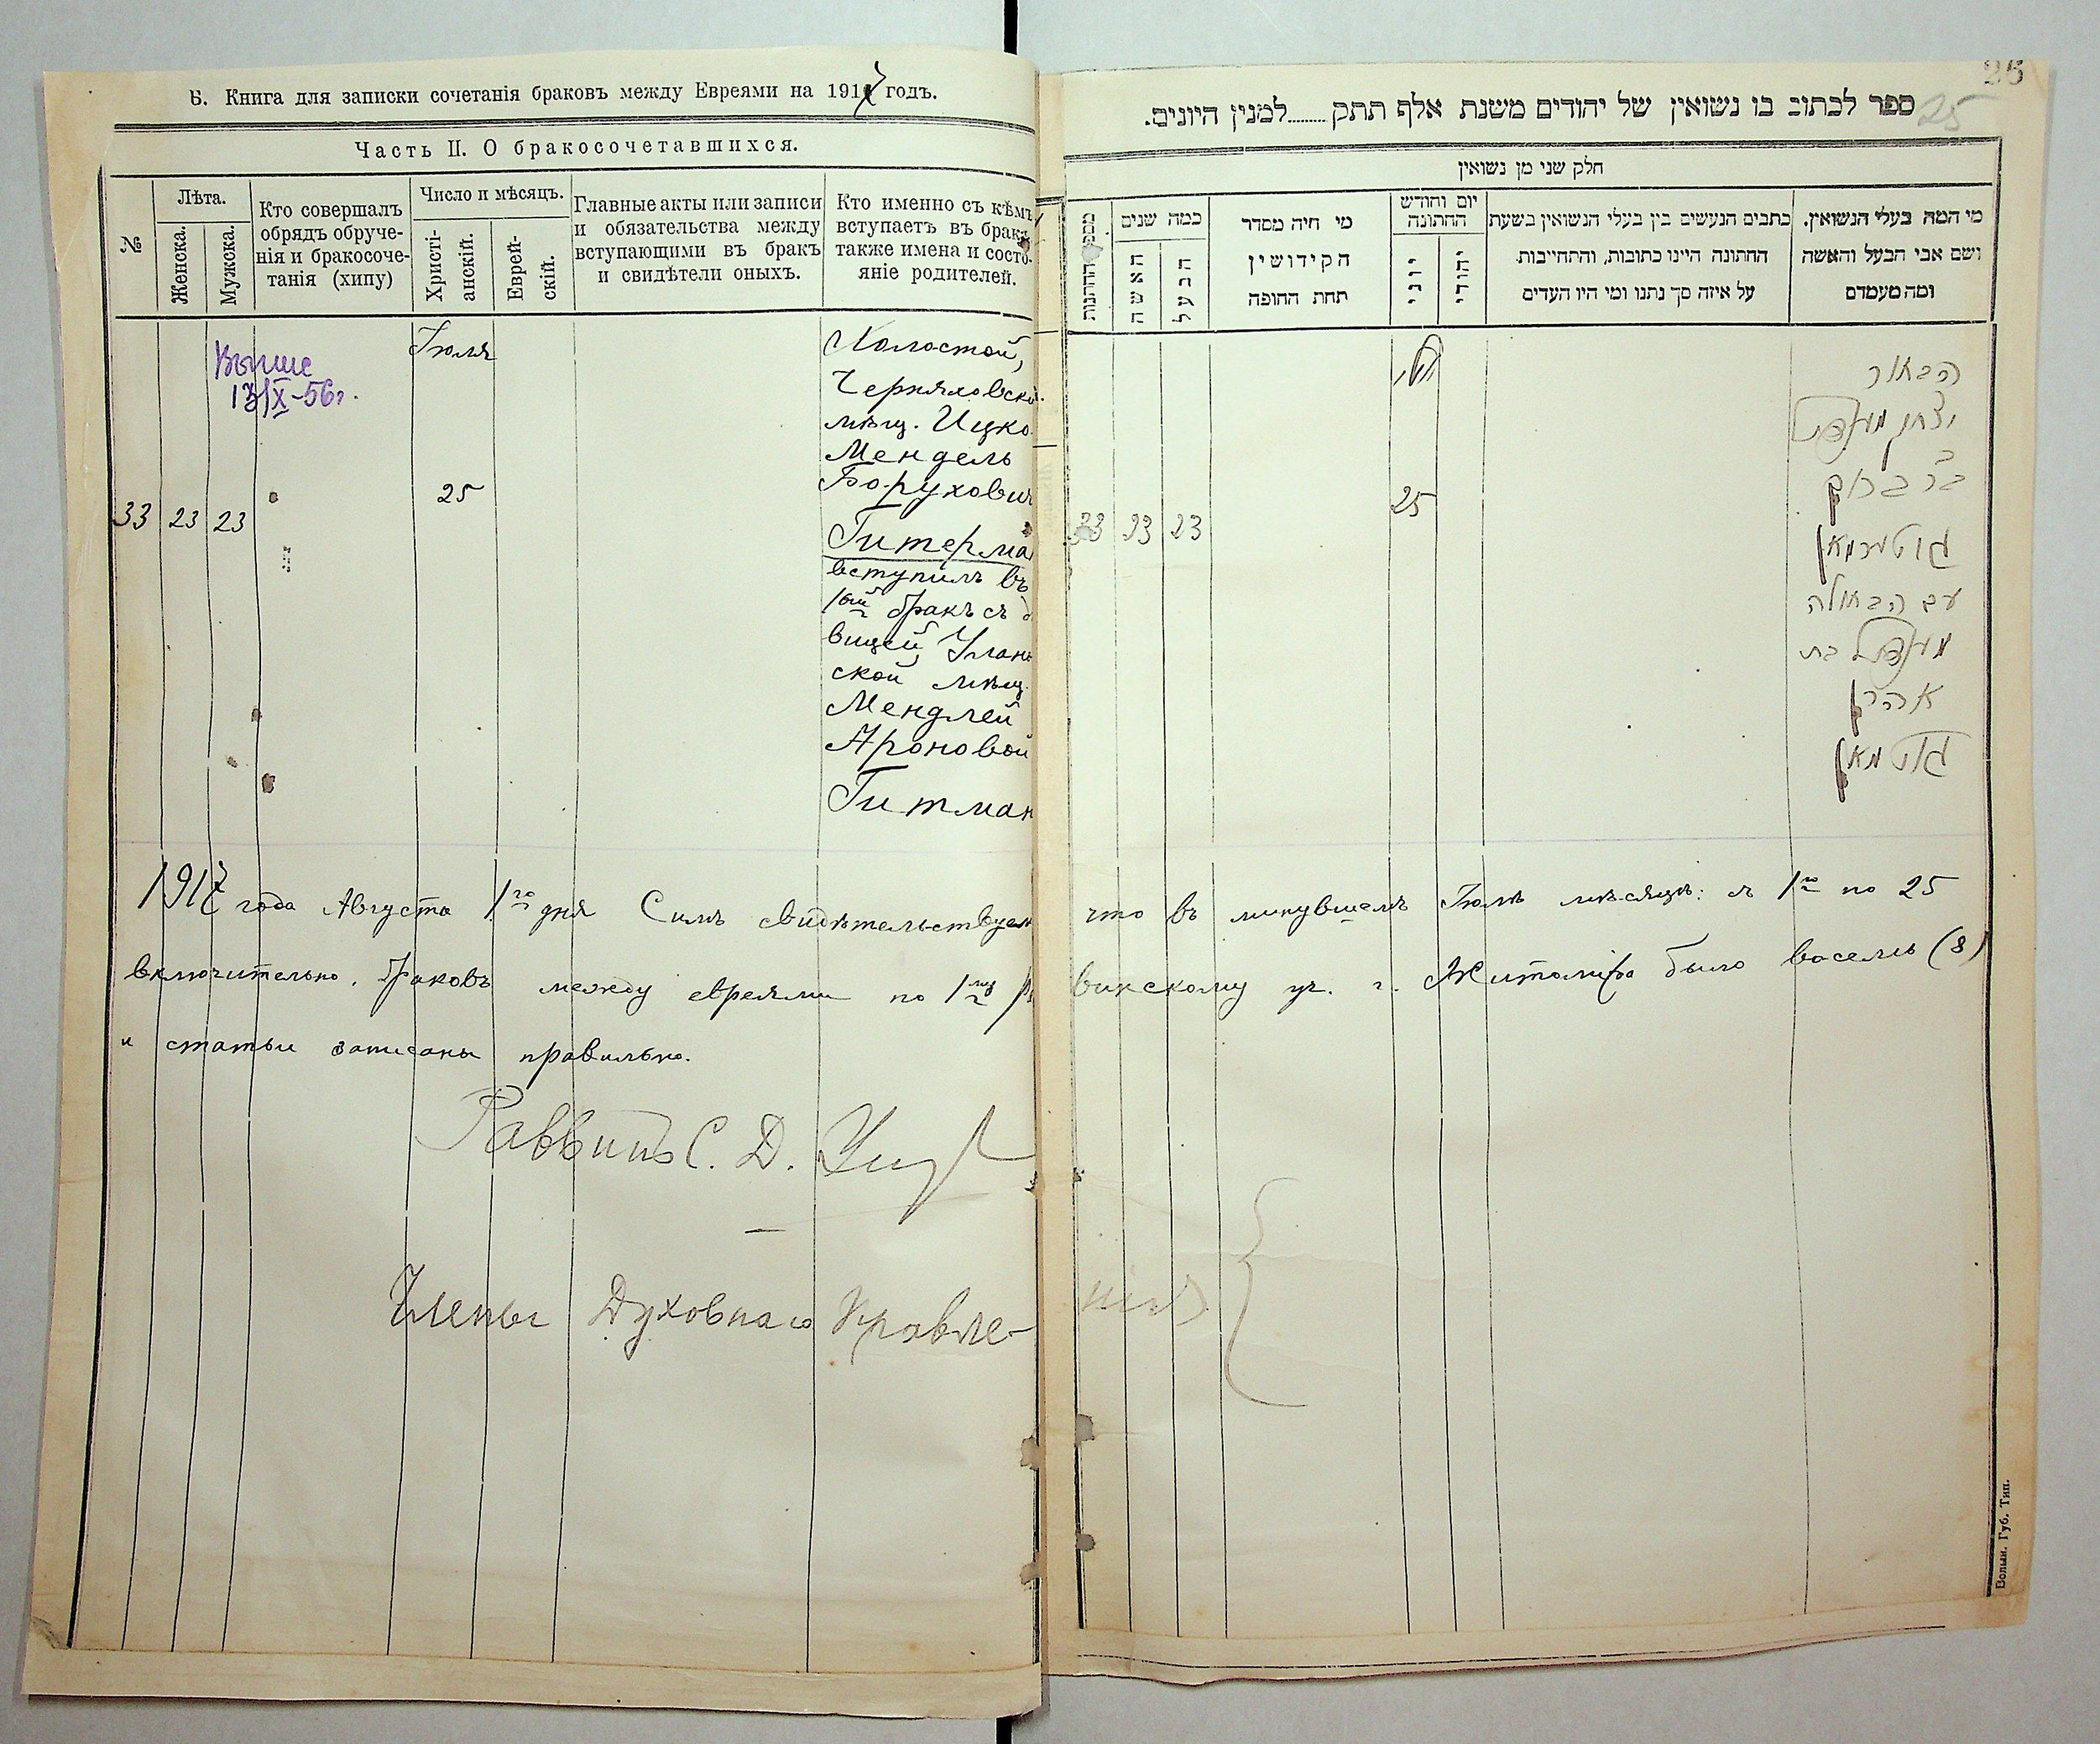 Б. Книга для записки сочетанія браковъ между Евреями на 1917 годъ.
Часть II. О бракосочетавшихся.
№
Лѣта.
Женска.
Мужска.
Кто совершалъ
обрядъ обруче-
нія и бракосоче-
танія (хипу)
Число и мѣсяцъ.
Христі-
анскій.
Еврей-
скій.
Главные акты или записи
и обязательства между
вступающими въ бракъ
и свидѣтели оныхъ.
Кто именно съ кѣмъ
вступаетъ въ бракъ
также имена и состо-
яніе родителей.
Выше
13/X-56г.
Іюля
33 23 23
25
Холостой,
Черняховскій
мѣщ. Ицко
Мендель
Борухович
Гитерма
вступилъ въ
1ый бракъ съ д
вицей Улан
ской мѣщ.
Мендлей
Ароновой
Гитман
1917 года Августа 1го дня Симъ свидѣтельствуем
включительно браковъ между евреями по 1му
и статьи записаны правильно.
Раввинъ С. Д.
Члены Духовнаго Правле-
26
25
ספר לכתוב בו נשואין של יהודים משנת אלף תתק.........למנין היונים.
חלק שני מן נשואין
מספר החתונות
כמה שנים
האשה
הבעל
מי היה מסדר
הקידושין
תחת החופה
יום וחודש
החתונה
יוני
יהודי
כתבים הנעשים בין בעלי הנשואין בשעת
החתונה היינו כתובות, והתחייבות
על איזה סך נתנו ומי היו העדים
מי המה בעלי הנשואין.
ושם אבי הבעל והאשה
ומה מעמדם
33 23 23
25
הבחור
יצחק מענדל
בר ברוך
גוטערמאן
עם הבתולה
מענדל בת
אהרן
גוטמאן
что въ минувшемъ Іюлѣ мѣсяцѣ: съ 1го по 25
винскому уч. г. Житомира было восемь (8)
нія
Волын. Губ. Тип.